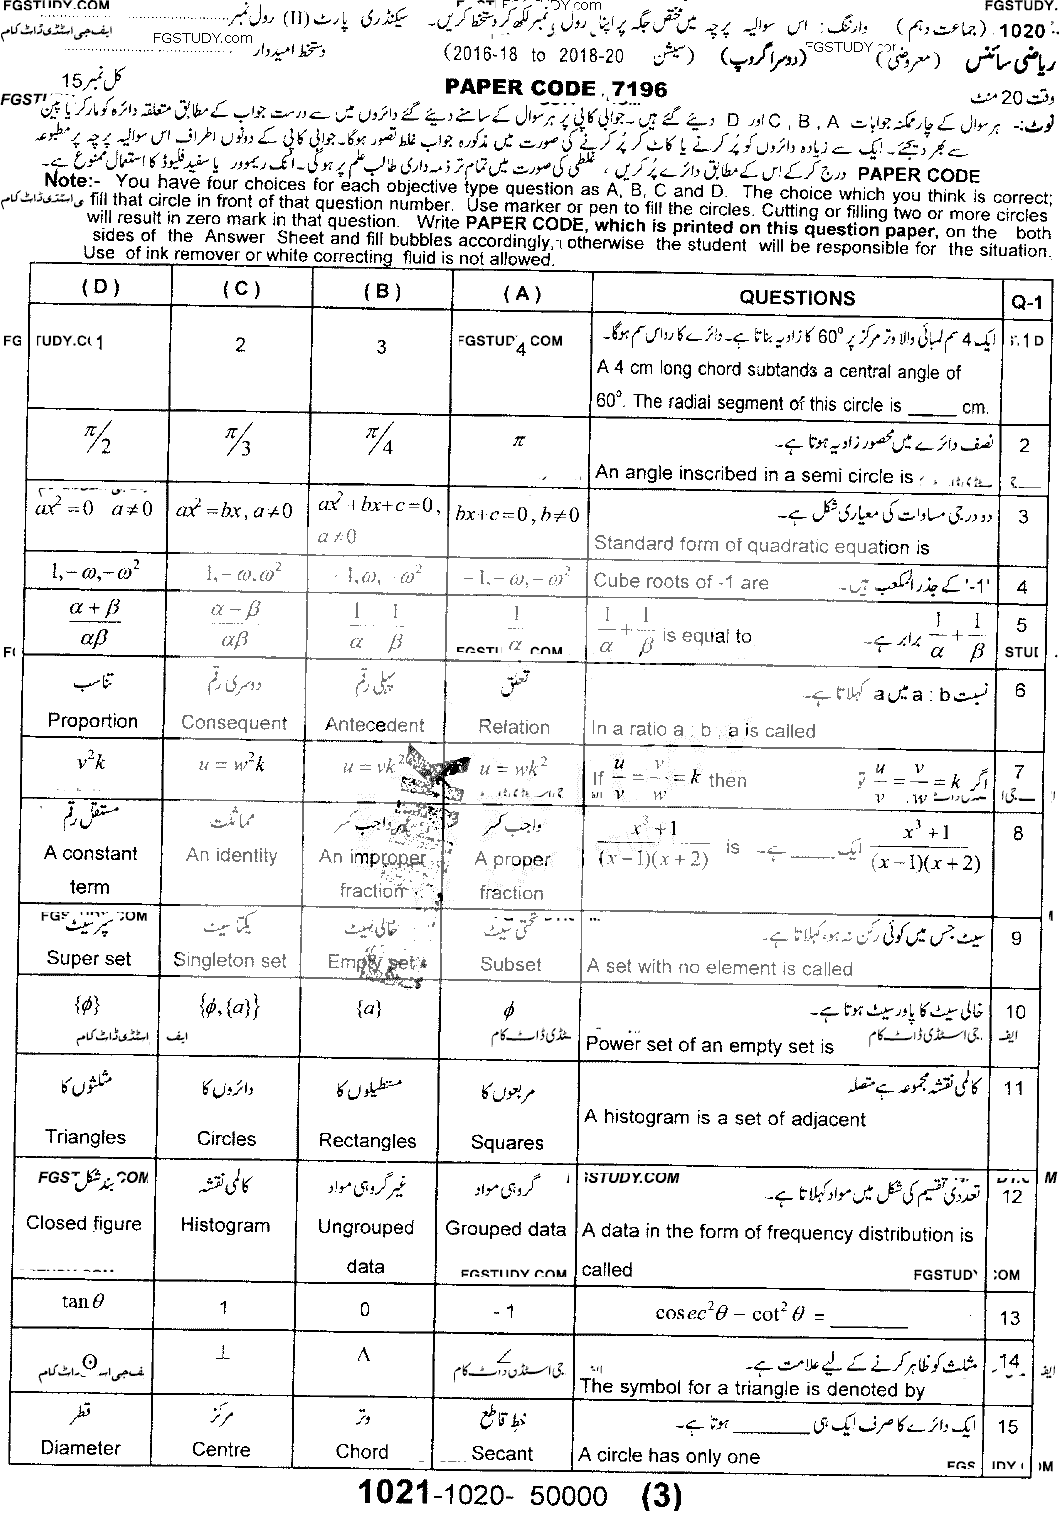 FGSTUDY.COM FGSTUDY.com FGSTUDY.
1020 (جماعت دہم) وارننگ: اس سوالیہ پرچہ میں مختص جگہ پر اپنا رول نمبر لکھ کر دستخط کریں۔ سیکنڈری پارٹ (II) رول نمبر
ایف جی اسٹڈی ڈاٹ کام FGSTUDY.com دستخط امیدوار
ریاضی سائنس (معروضی) (دوسرا گروپ) (سیشن 2016-18 to 2018-20)
وقت 20 منٹ PAPER CODE 7196 کل نمبر 15
نوٹ:- ہر سوال کے چار ممکنہ جوابات A , B , C اور D دیئے گئے ہیں۔ جوابی کاپی پر ہر سوال کے سامنے دیئے گئے دائروں میں سے درست جواب کے مطابق متعلقہ دائرہ کو مارکر یا پین
سے بھر دیجئے۔ ایک سے زیادہ دائروں کو پُر کرنے یا کاٹ کر پُر کرنے کی صورت میں مذکورہ جواب غلط تصور ہوگا۔ جوابی کاپی کے دونوں اطراف اس سوالیہ پرچہ پر مطبوعہ
PAPER CODE درج کر کے اس کے مطابق دائرے پُر کریں، غلطی کی صورت میں تمام تر ذمہ داری طالب علم پر ہوگی۔ انک ریموور یا سفید فلیوڈ کا استعمال ممنوع ہے۔
Note:- You have four choices for each objective type question as A, B, C and D. The choice which you think is correct;
fill that circle in front of that question number. Use marker or pen to fill the circles. Cutting or filling two or more circles
will result in zero mark in that question. Write PAPER CODE, which is printed on this question paper, on the both
sides of the Answer Sheet and fill bubbles accordingly, otherwise the student will be responsible for the situation.
Use of ink remover or white correcting fluid is not allowed.
(D) (C) (B) (A) QUESTIONS Q-1
ایک 4 سم لمبائی والا وتر مرکز پر 60° کا زاویہ بناتا ہے۔ دائرے کا رداس سم ہوگا۔
1 2 3 4 A 4 cm long chord subtands a central angle of
60°. The radial segment of this circle is _____ cm.
نصف دائرے میں محصور زاویہ ہوتا ہے۔ 2
π/2 π/3 π/4 π An angle inscribed in a semi circle is
دو درجی مساوات کی معیاری شکل ہے۔ 3
ax²=0 a≠0 ax²=bx, a≠0 ax²+bx+c=0, a≠0 bx+c=0, b≠0
Standard form of quadratic equation is
1,-ω,-ω² 1,-ω,ω² -1,ω,-ω² -1,-ω,-ω² Cube roots of -1 are '-1' کے جذر المکعب ہیں۔ 4
α+β/αβ α-β/αβ 1/α 1/β 1/α 1/α + 1/β is equal to 1/α + 1/β برابر ہے۔ 5
تناسب دوسری رقم پہلی رقم تعلق نسبت a : b میں a کہلاتا ہے۔ 6
Proportion Consequent Antecedent Relation In a ratio a : b , a is called
v²k u=w²k u=vk² u=wk² If u/v = v/w = k then اگر u/v = v/w = k 7
مستقل رقم مماثلت غیر واجب کسر واجب کسر 8
A constant term An identity An improper fraction A proper fraction
x³+1/(x-1)(x+2) is ایک _____ ہے۔ x³+1/(x-1)(x+2)
سپر سیٹ یکتا سیٹ خالی سیٹ تحتی سیٹ سیٹ جس میں کوئی رکن نہ ہو، کہلاتا ہے۔ 9
Super set Singleton set Empty set Subset A set with no element is called
{φ} {φ,{a}} {a} φ خالی سیٹ کا پاور سیٹ ہوتا ہے۔ 10
Power set of an empty set is
مثلثوں کا دائروں کا مستطیلوں کا مربعوں کا کالمی نقشہ مجموعہ ہے متصلہ 11
Triangles Circles Rectangles Squares A histogram is a set of adjacent
بند شکل کالمی نقشہ غیر گروہی مواد گروہی مواد تعددی تقسیم کی شکل میں مواد کہلاتا ہے۔ 12
Closed figure Histogram Ungrouped data Grouped data A data in the form of frequency distribution is
called
FGSTUDY.COM
tan θ 1 0 -1 cosec²θ - cot²θ = _______ 13
⊙ ⊥ Λ ∠ مثلث کو ظاہر کرنے کے لیے علامت ہے۔ 14
The symbol for a triangle is denoted by
قطر مرکز وتر خط قاطع ایک دائرے کا صرف ایک ہی _______ ہوتا ہے۔ 15
Diameter Centre Chord Secant A circle has only one
1021-1020- 50000 (3)